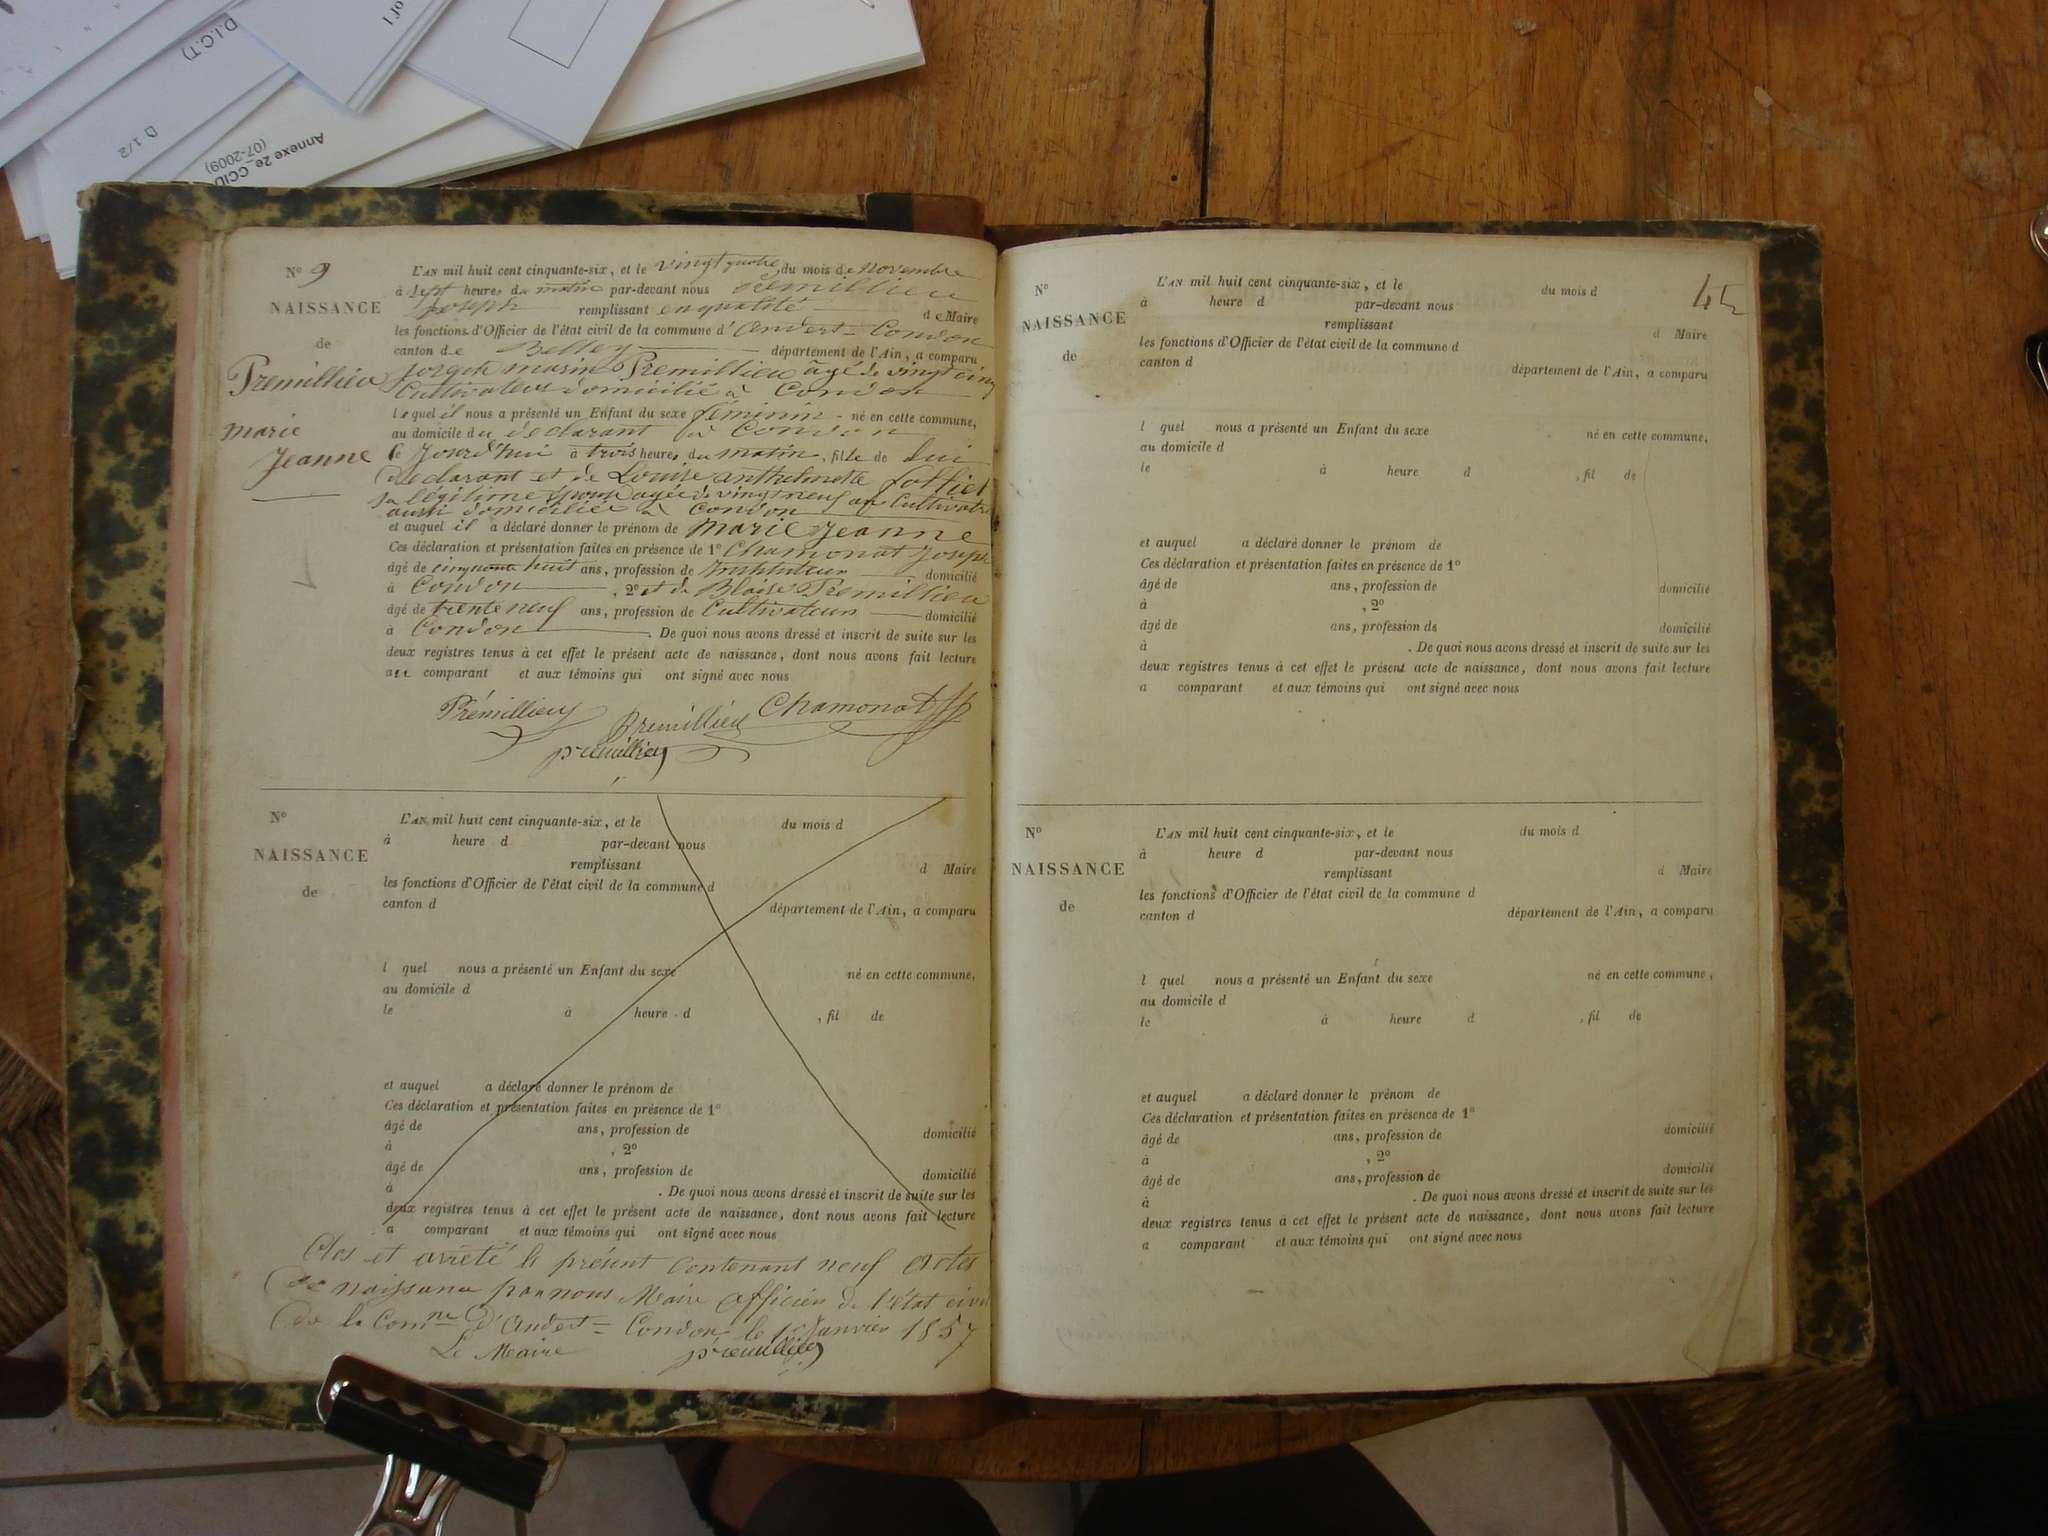 of 1
D.I.C.T)
D 1/2
Annexe 2e_CCID
(07-2009)
N° 9
NAISSANCE
de
Premillieu
marie
Jeanne
L'AN mil huit cent cinquante-six, et le vingt quatre du mois de novembre
à sept heures du matin par-devant nous
Joseph remplissant en qualité de Maire
les fonctions d'Officier de l'état civil de la commune d'Andert-Condon
canton de Belley département de l'Ain, a comparu
joseph marin Premillieu âgé de vingt cinq
Cultivateur domicilié à Condon
lequel il nous a présenté un Enfant du sexe féminin né en cette commune,
au domicile du déclarant à Condon
le Jourd'hui à trois heures du matin, fille de lui
déclarant et de Louise anthelmette
sa légitime épouse agée de vingt neuf ans Cultivatrice
aussi domiciliée à Condon
et auquel il a déclaré donner le prénom de marie Jeanne
Ces déclaration et présentation faites en présence de 1° Chamonat Joseph
âgé de cinquante huit ans, profession de Instituteur domicilié
à Condon, 2° et de Blaise Premillieu
âgé de trente neuf ans, profession de Cultivateur domicilié
à Condon. De quoi nous avons dressé et inscrit de suite sur les
deux registres tenus à cet effet le présent acte de naissance, dont nous avons fait lecture
au comparant et aux témoins qui ont signé avec nous
Prémillieu premillieu Chamonat
premillieu
N°
NAISSANCE
de
L'AN mil huit cent cinquante-six, et le du mois d
à heure d par-devant nous
remplissant d Maire
les fonctions d'Officier de l'état civil de la commune d
canton d département de l'Ain, a comparu
l quel nous a présenté un Enfant du sexe né en cette commune,
au domicile d
le à heure d , fil de
et auquel a déclaré donner le prénom de
Ces déclaration et présentation faites en présence de 1°
âgé de ans, profession de domicilié
à , 2°
âgé de ans, profession de domicilié
à . De quoi nous avons dressé et inscrit de suite sur les
deux registres tenus à cet effet le présent acte de naissance, dont nous avons fait lecture
a comparant et aux témoins qui ont signé avec nous
Clos et arrêté le présent contenant neuf actes
de naissance par nous Maire officier de l'état civil
de la Comne d'Andert-Condon le 1er Janvier 1857
Le Maire premillieu
N°
NAISSANCE
de
L'AN mil huit cent cinquante-six, et le du mois d
à heure d par-devant nous
remplissant
d Maire
les fonctions d'Officier de l'état civil de la commune d
canton d département de l'Ain, a comparu
l quel nous a présenté un Enfant du sexe né en cette commune,
au domicile d
le à heure d , fil de
et auquel a déclaré donner le prénom de
Ces déclaration et présentation faites en présence de 1°
âgé de ans, profession de domicilié
à , 2°
âgé de ans, profession de domicilié
à . De quoi nous avons dressé et inscrit de suite sur les
deux registres tenus à cet effet le présent acte de naissance, dont nous avons fait lecture
a comparant et aux témoins qui ont signé avec nous
N°
NAISSANCE
de
L'AN mil huit cent cinquante-six, et le du mois d
à heure d par-devant nous
remplissant
d Maire
les fonctions d'Officier de l'état civil de la commune d
canton d département de l'Ain, a comparu
l quel nous a présenté un Enfant du sexe né en cette commune,
au domicile d
le à heure d , fil de
et auquel a déclaré donner le prénom de
Ces déclaration et présentation faites en présence de 1°
âgé de ans, profession de domicilié
à , 2°
âgé de ans, profession de domicilié
à . De quoi nous avons dressé et inscrit de suite sur les
deux registres tenus à cet effet le présent acte de naissance, dont nous avons fait lecture
a comparant et aux témoins qui ont signé avec nous